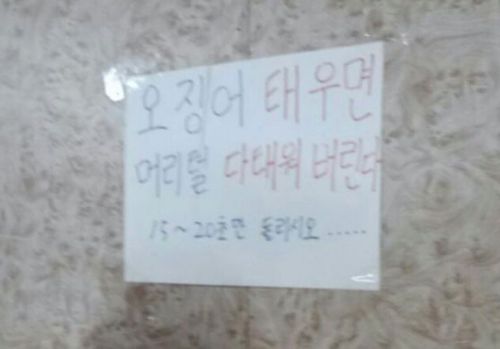 오징어 태우면
머리털 다태워 버린다
15~20초만 돌리시오.....